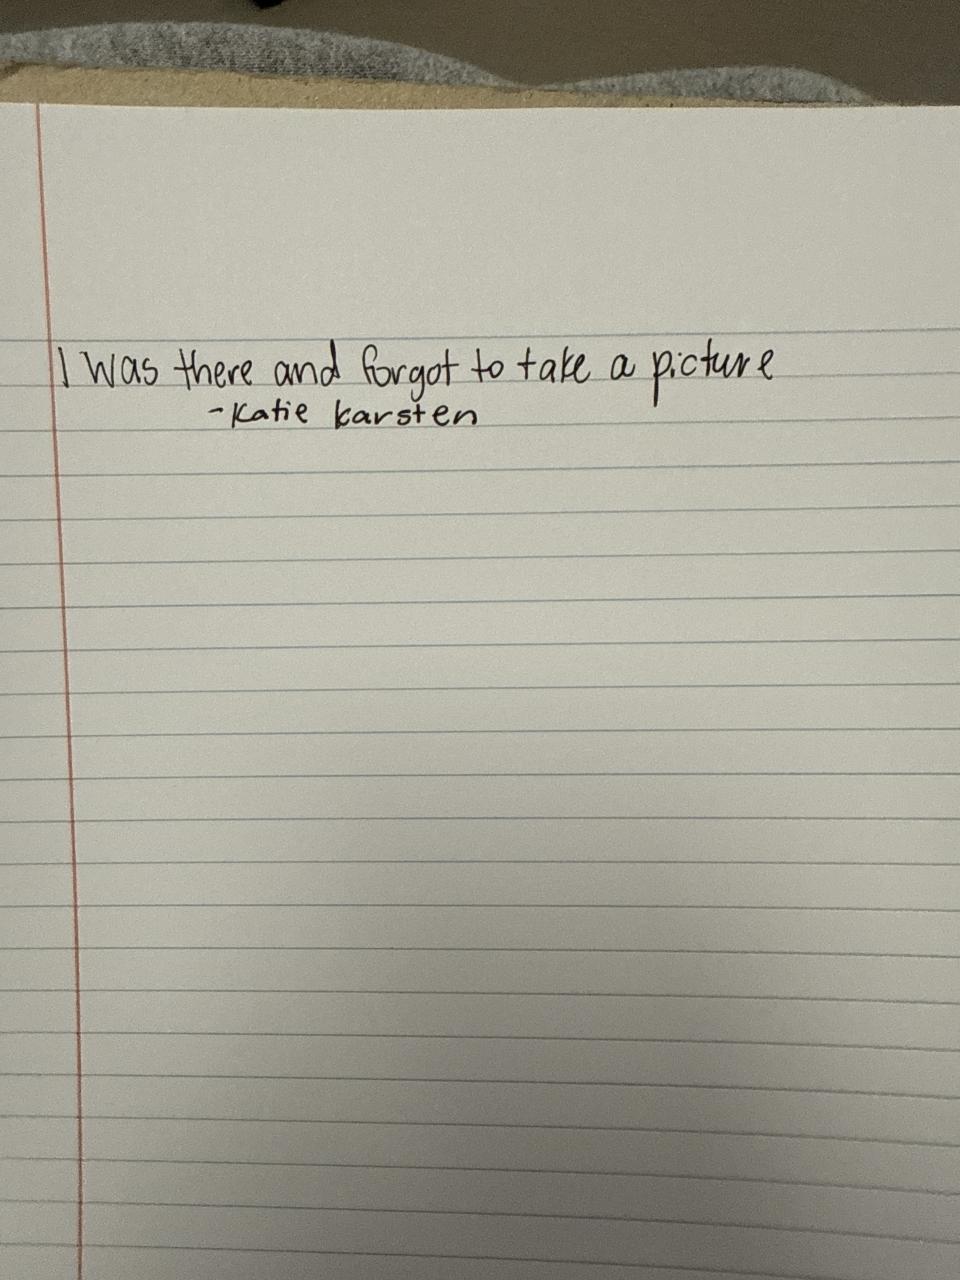 I was there and forgot to take a picture
-Katie Karsten